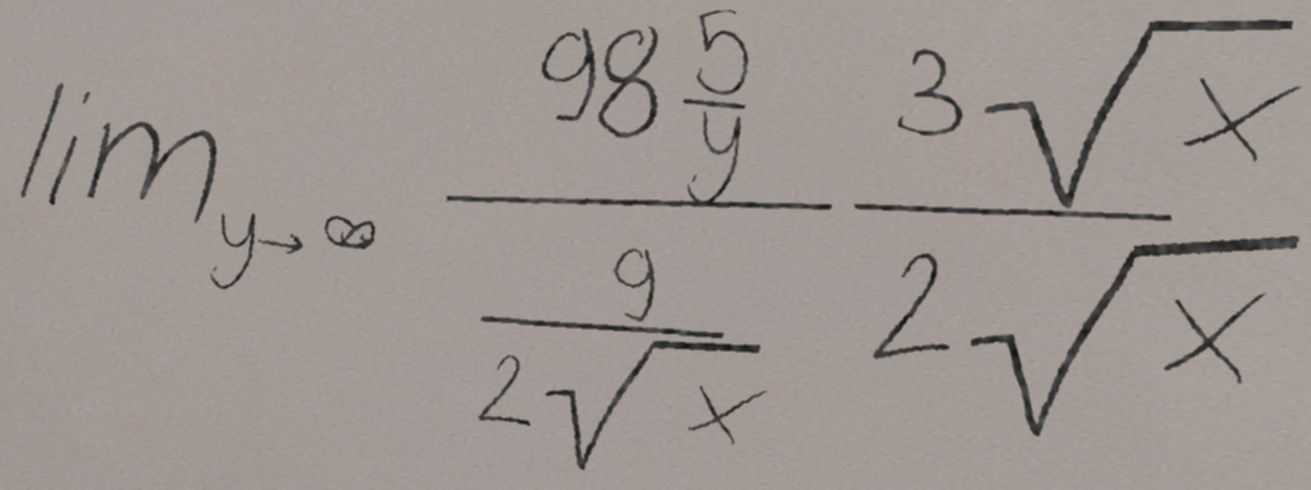 \lim_{y \to \infty} \frac{98 \frac{5}{y}}{\frac{9}{2 \sqrt{x}}} \frac{3 \sqrt{x}}{2 \sqrt{x}}